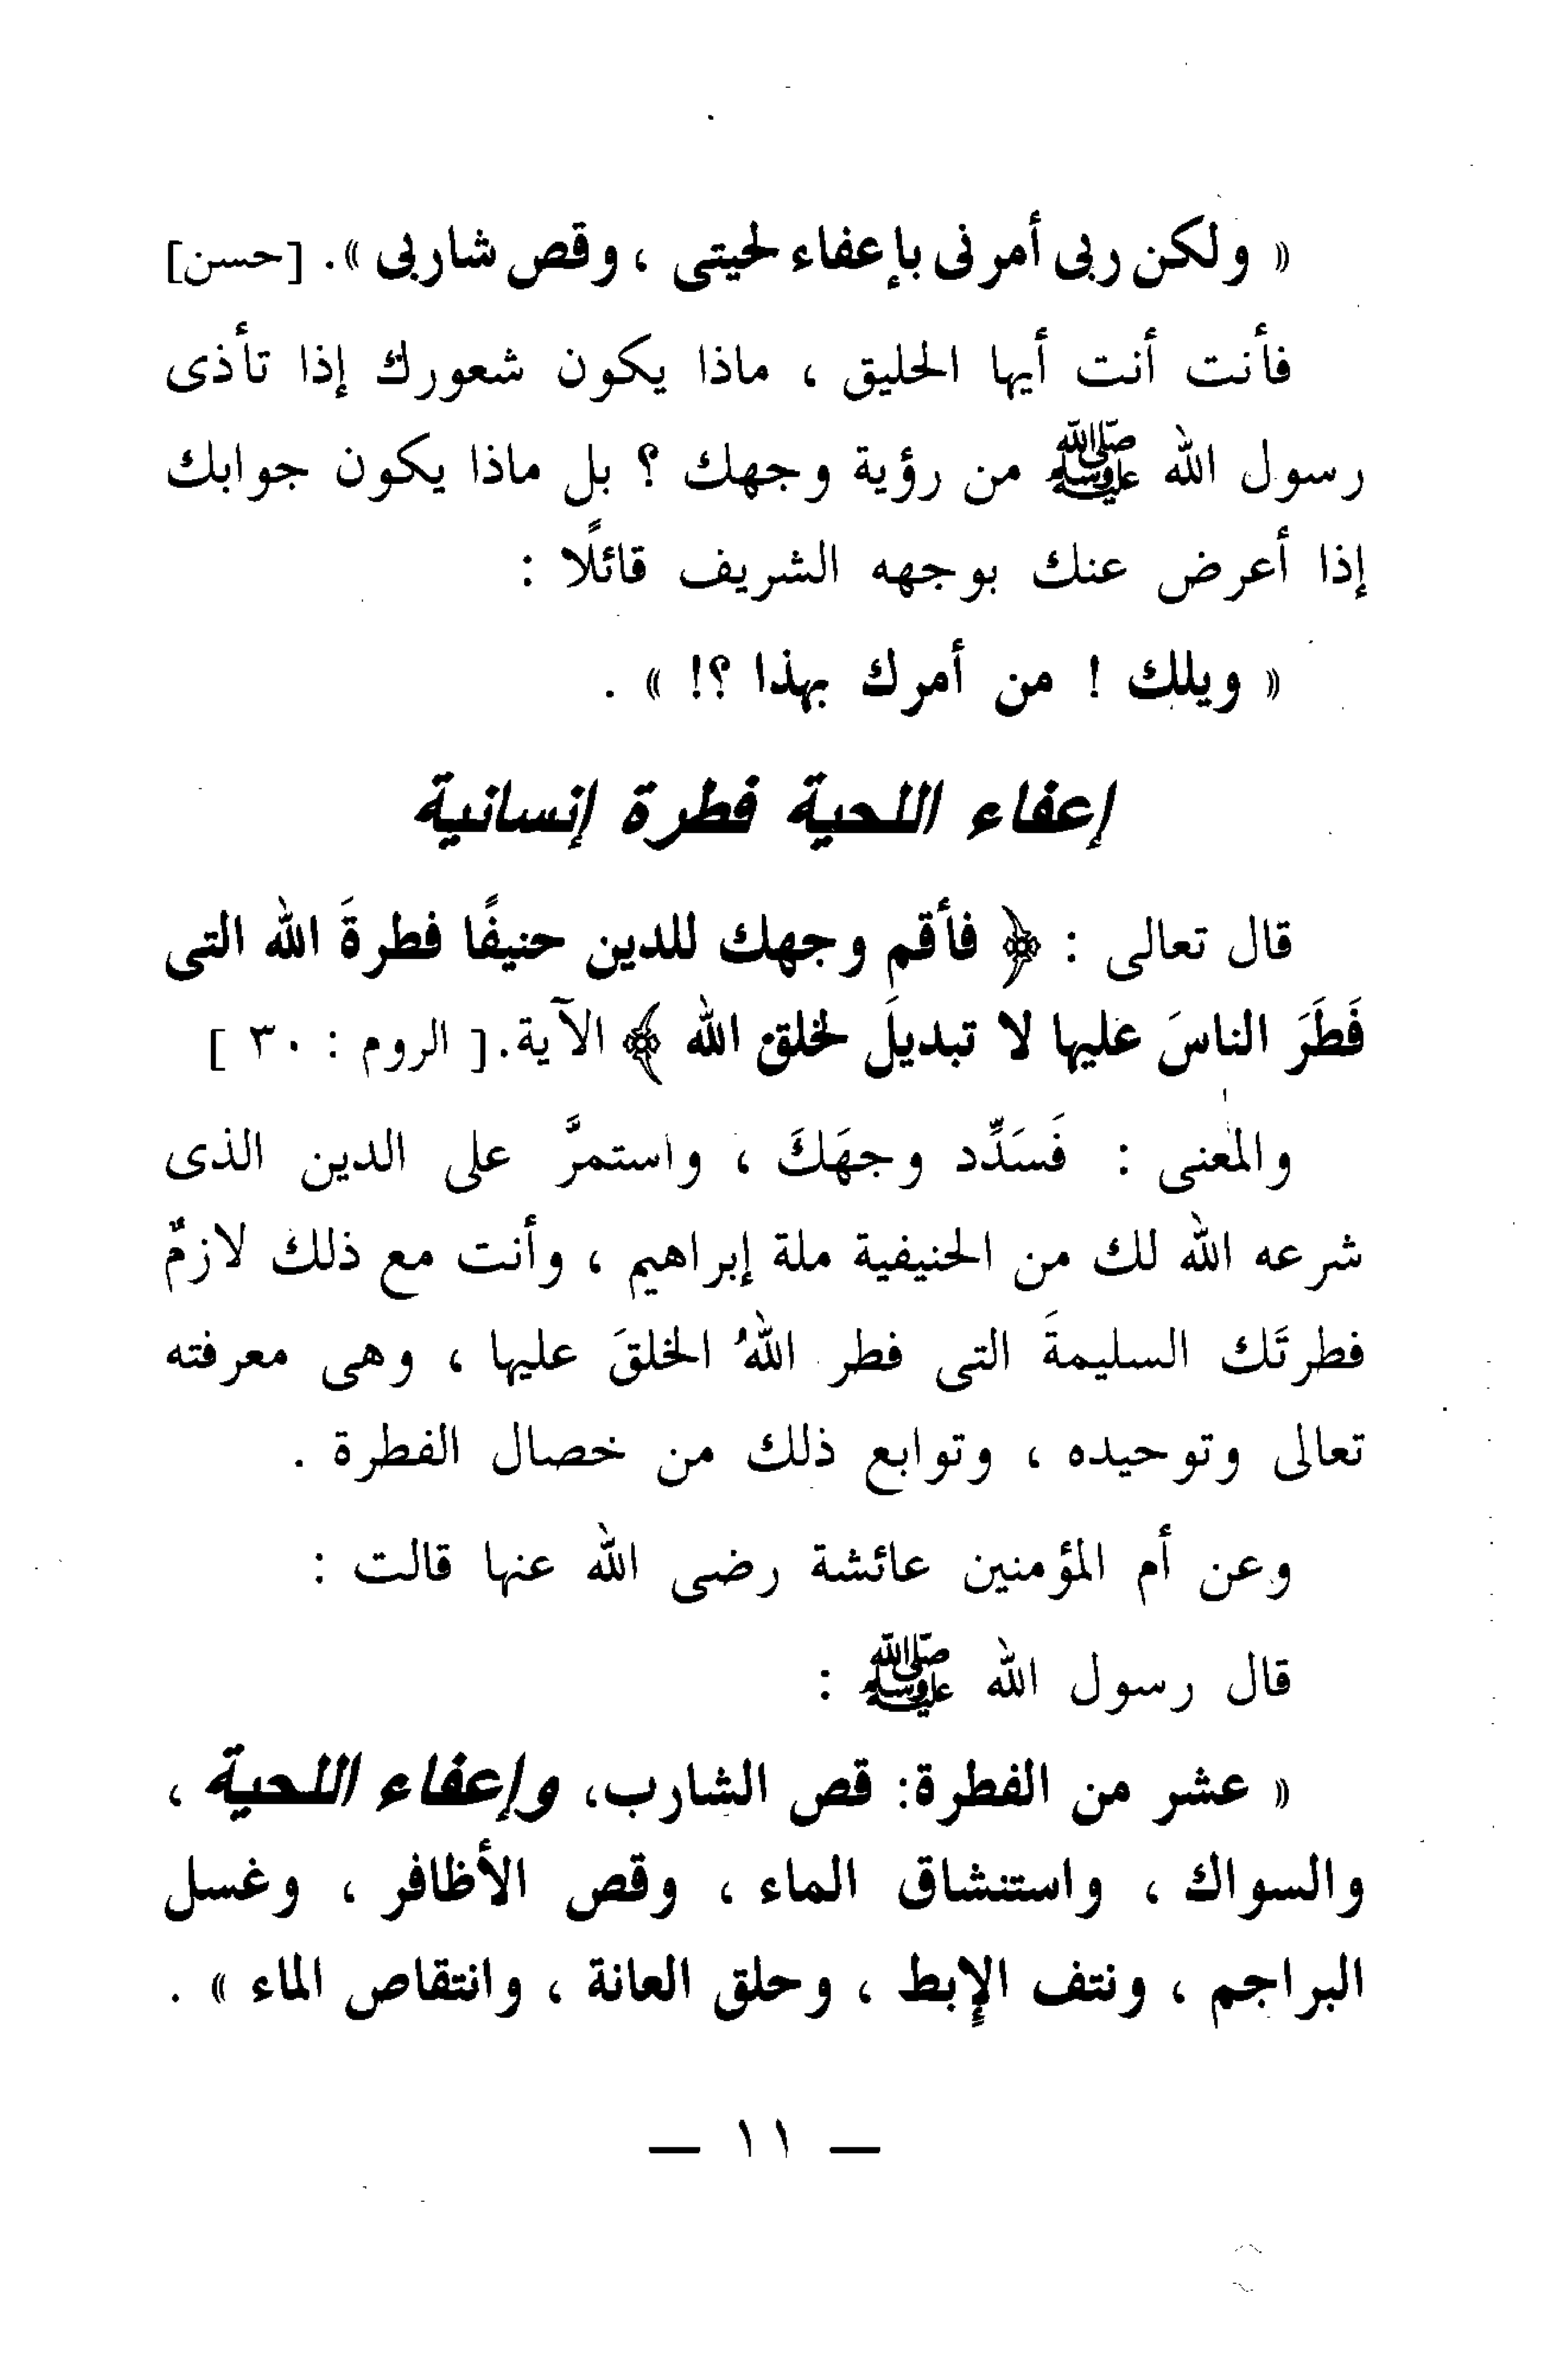 « ولكن ربى أمرنى بإعفاء لحيتى ، وقص شاربى » . [حسن]
فأنت أنت أيها الحليق ، ماذا يكون شعورك إذا تأذى
رسول الله ﷺ من رؤية وجهك ؟ بل ماذا يكون جوابك
إذا أعرض عنك بوجهه الشريف قائلًا :
« ويلك ! من أمرك بهذا ؟! » .
إعفاء اللحية فطرة إنسانية
قال تعالى : ﴿ فأقم وجهك للدين حنيفًا فطرةَ الله التى
فَطَرَ الناسَ عليها لا تبديلَ لخلق الله ﴾ الآية . [ الروم : ٣٠ ]
والمعنى : فَسَدِّد وجهَكَ ، واستمرَّ على الدين الذى
شرعه الله لك من الحنيفية ملة إبراهيم ، وأنت مع ذلك لازمٌ
فطرتَك السليمةَ التى فطر اللهُ الخلقَ عليها ، وهى معرفته
تعالى وتوحيده ، وتوابع ذلك من خصال الفطرة .
وعن أم المؤمنين عائشة رضى الله عنها قالت :
قال رسول الله ﷺ :
« عشر من الفطرة: قص الشارب، وإعفاء اللحية ،
والسواك ، واستنشاق الماء ، وقص الأظافر ، وغسل
البراجم ، ونتف الإبط ، وحلق العانة ، وانتقاص الماء » .
— ١١ —